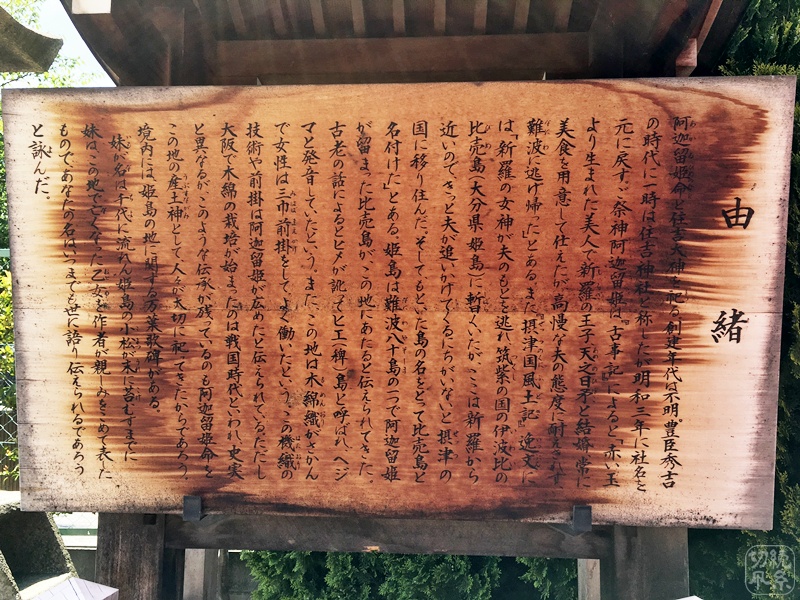 由緒
阿迦留姫命と住吉大神を祀る。創建年代は不明。豊臣秀吉
の時代に一時は住吉神社と称したが明和三年に社名を
元に戻す。ご祭神阿迦留姫は、「古事記」によると「赤い玉
より生まれた美人で新羅の王子天之日矛と結婚、常に
美食を用意して仕えたが高慢な夫の態度に耐えきれず
難波に逃げ帰った」とある。また「摂津国風土記」逸文に
は、「新羅の女神が夫のもとを逃れ筑紫の国の伊波比の
比売島(大分県姫島)に暫くいたが、ここは新羅から
近いので、きっと夫が追いかけてくるにちがいないと摂津の
国に移り住んだ。そしてもといた島の名をとって比売島と
名付けた」とある。姫島は難波八十島の一つで阿迦留姫
が留まった比売島が、この地にあたると伝えられてきた。
古老の話によるとヒメが訛ってヒエ(稗)島と呼ばれ、ヘジ
マと発音していたという。また、この地は木綿織がさかん
で女性は三巾前掛をして、よく働いたという。この機織の
技術や前掛は阿迦留姫が広めたと伝えられている。ただし
大阪で木綿の栽培が始まったのは戦国時代といわれ、史実
と異なるが、このような伝承が残っているのも阿迦留姫命を
この地の産土神として人々が大切に祀ってきたからであろう。
境内には、姫島の地に関する万葉歌碑がある。
妹が名は千代に流れん姫島の小松が末に苔むすまでに
妹はこの地で亡くなった乙女を作者が親しみをこめて表した
もので、あなたの名はいつまでも世に語り伝えられるであろう
と詠んだ。
切続